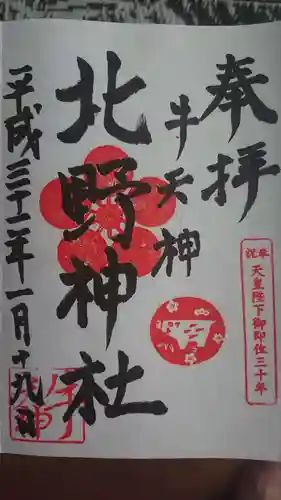 奉拝
牛天神
北野神社
平成三十一年一月十九日
奉祝 天皇陛下御即位三十年